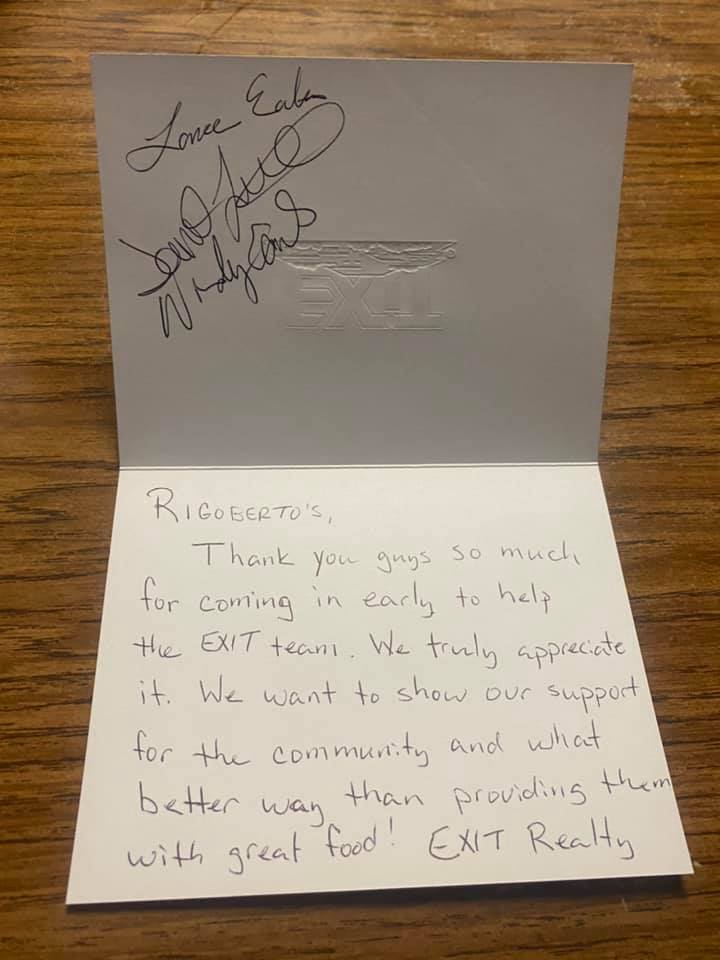 Lance
RIGOBERTO'S,
Thank you guys so much
for coming in early to help
the EXIT team. We truly appreciate
it. We want to show our support
for the community and what
better way than providing them
with great food! EXIT Realty
EXIT